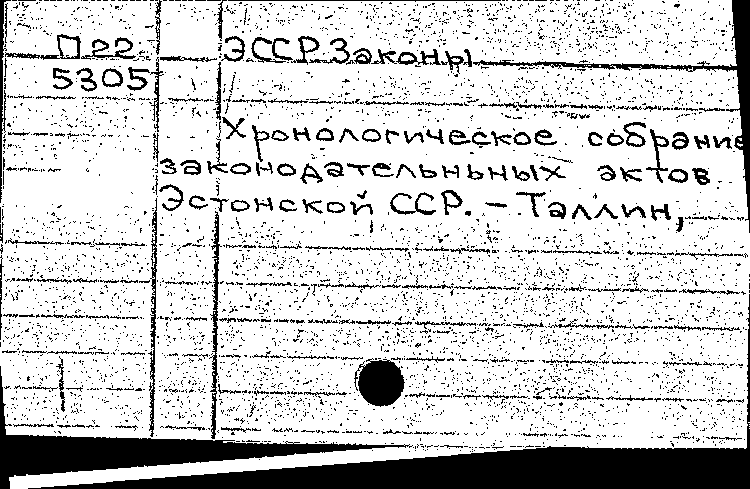 П22 ЭССР. Законы
5305
Хронологическое собрание
законодательньных актов
Эстонской ССР. – Таллин,